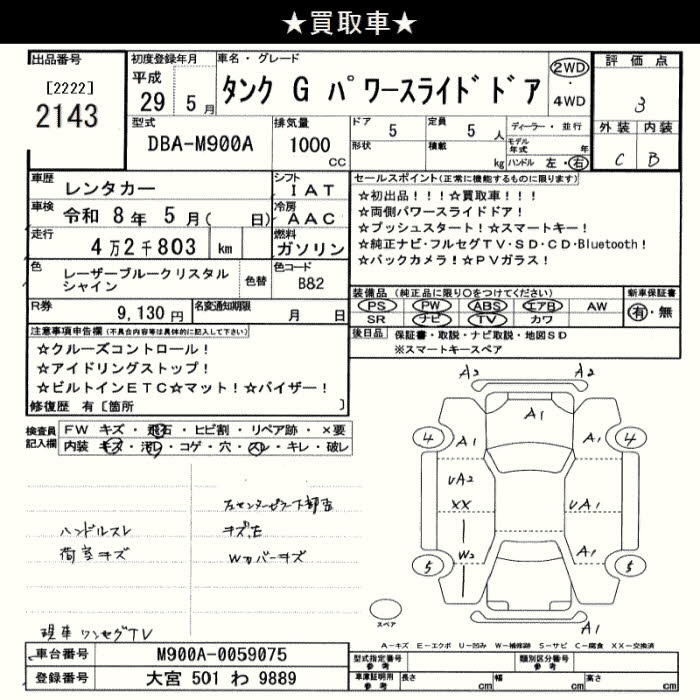 ★買取車★
出品番号
[2222]
2143
初度登録年月
平成
29 5月
車名・グレード
タンク G パワースライドドア
2WD
・
4WD
評価点
3
外装 内装
C B
型式
DBA-M900A
排気量
1000
cc
ドア 5
形状
定員 5人
積載 kg
ディーラー・並行
モデル年式 年
ハンドル 左・右
車歴 レンタカー
シフト IAT
車検 令和 8年 5月( 日)
冷房 AAC
走行 4万2千803 km
燃料 ガソリン
色 レーザーブルークリスタルシャイン
色替
色コード B82
R券 9,130円
名変通知期限 月 日
セールスポイント(正常に機能するものに限ります)
☆初出品!!!☆買取車!!!
☆両側パワースライドドア!
☆プッシュスタート!☆スマートキー!
☆純正ナビ・フルセグTV・SD・CD・Bluetooth!
☆バックカメラ!☆PVガラス!
装備品 (純正品に限り○をつけてください)
PS PW ABS エアB AW
SR ナビ TV カワ
新車保証書
有・無
後日品 保証書・取説・ナビ取説・地図SD
※スマートキースペア
注意事項申告欄(不具合内容等は具体的に記入して下さい)
☆クルーズコントロール!
☆アイドリングストップ!
☆ビルトインETC☆マット!☆バイザー!
修復歴 有[箇所 ]
検査員記入欄
FW キズ・飛石・ヒビ割・リペア跡・×要
内装 キズ・汚レ・コゲ・穴・スレ・キレ・破レ
ハンドルスレ
荷室キズ
左センターピラー下部凹
キズ、E
Wカバーキズ
現車 ワンセグTV
A2 A2
A1
4 A1 A1 4
UA2
XX
UA1
W2
A1
5 5
A1
スペア
A-キズ E-エクボ U-凹み W-補修跡 S-サビ C-腐食 XX-交換済
車台番号 M900A-0059075
登録番号 大宮 501 わ 9889
型式指定番号 参考
類別区分番号 参考
車庫証明用 参考
長さ cm
幅 cm
高さ cm